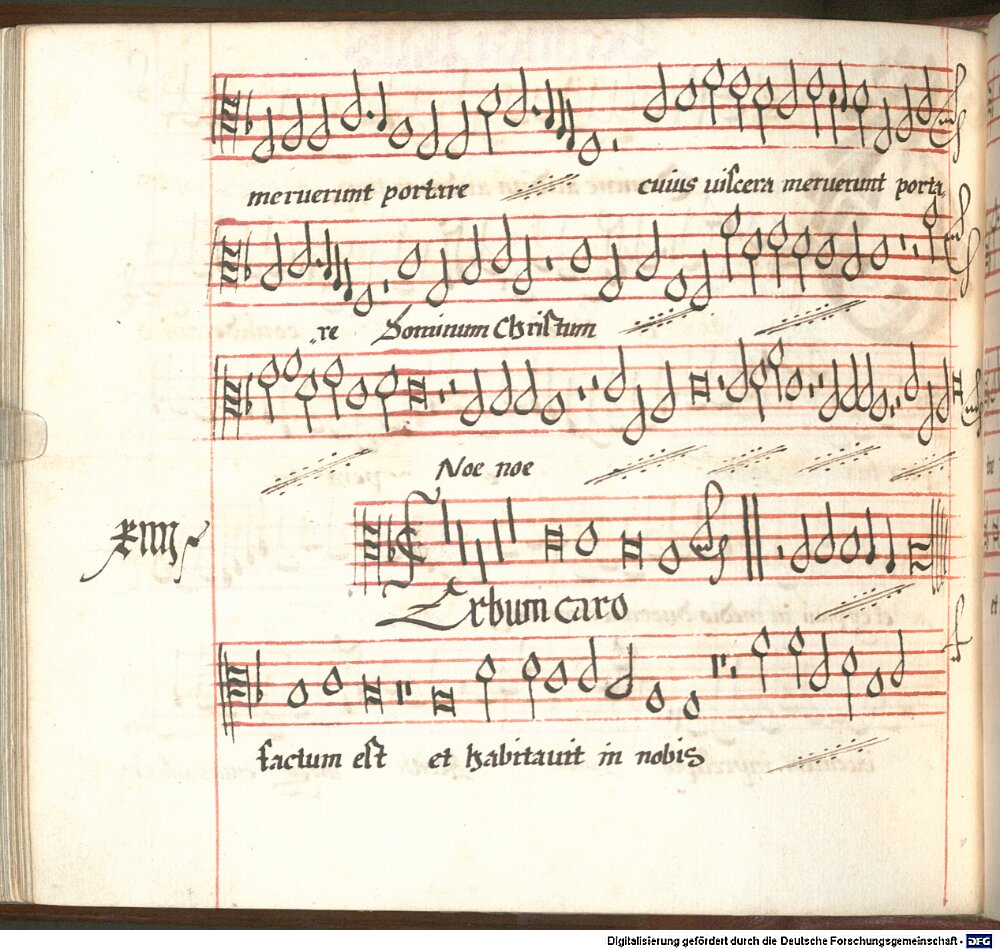 meruerunt portare cuius uiscera meruerunt porta
re Dominum Christum
Noe noe
XIIII
Verbum caro
factum est et habitauit in nobis
Digitalisierung gefördert durch die Deutsche Forschungsgemeinschaft - DFG